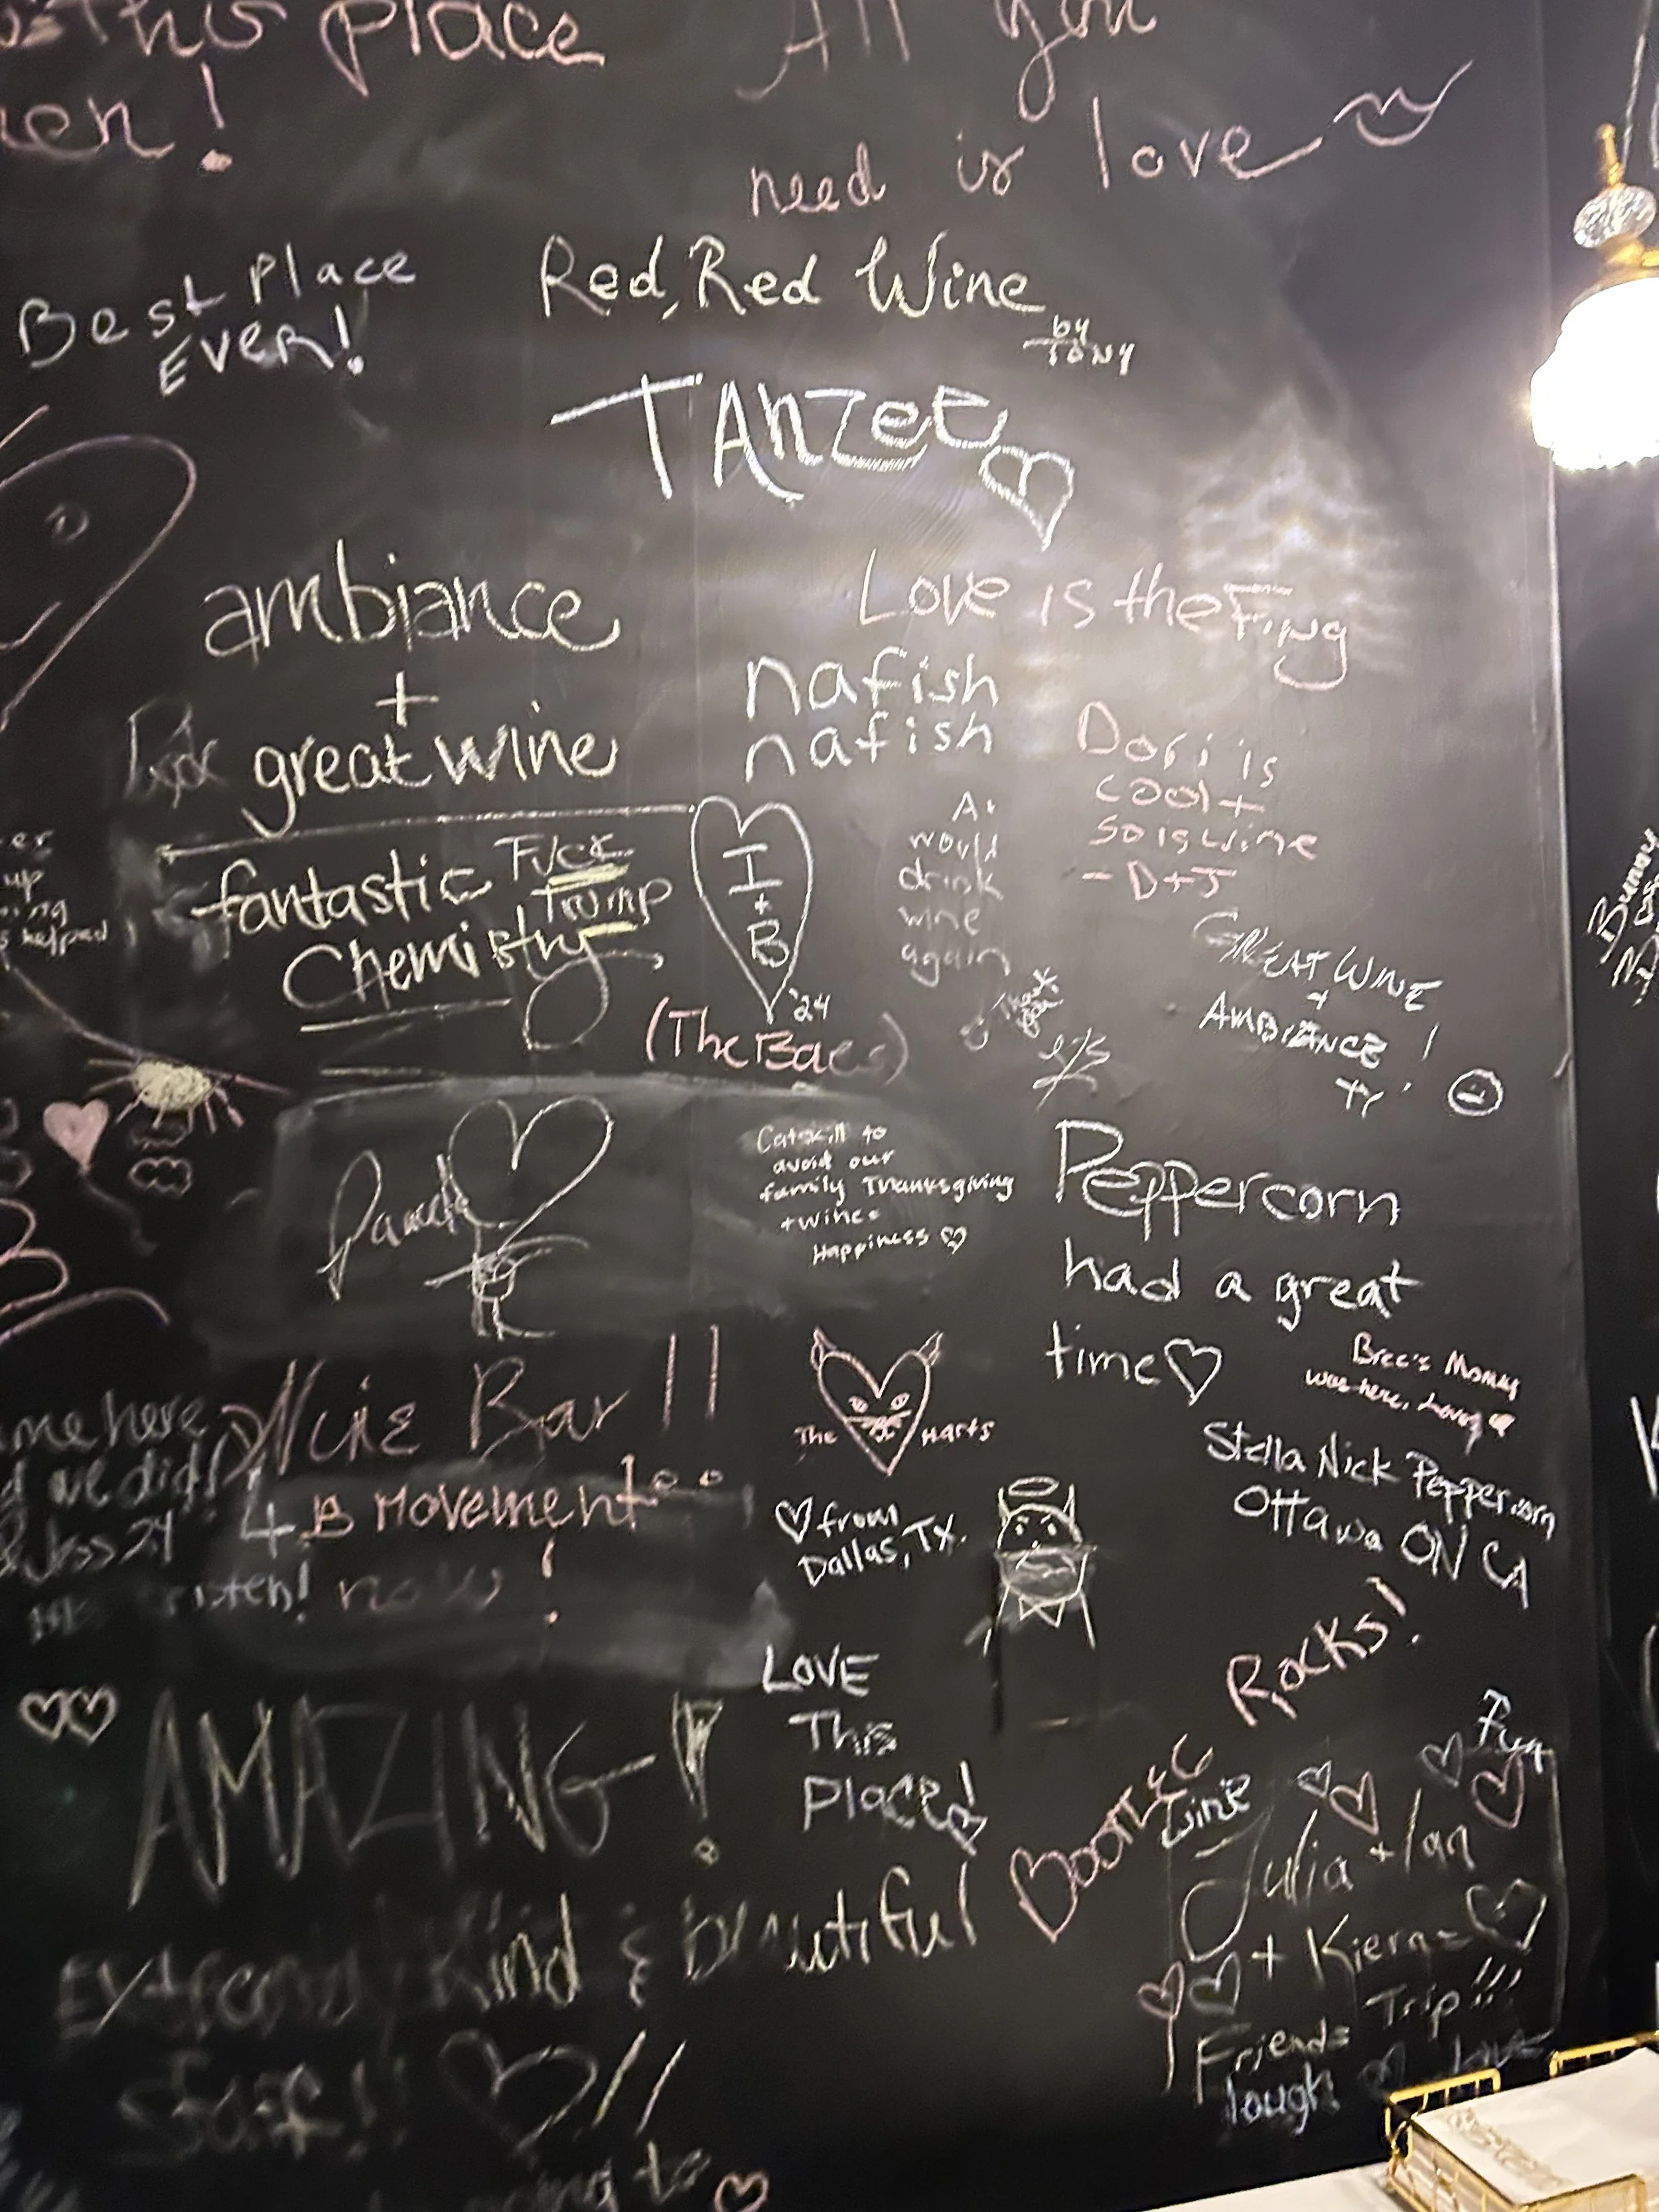 this place
All you
need is love
Best Place
Ever!
Red, Red Wine
by
Tony
TAnzee
ambiance
+
great wine
Love is the
nafish
nafish
Dori is
cool +
so is wine
- D+J
fantastic
Chemistry
Fuck
Trump
I
+
B
'24
(The Baes)
would
drink
wine
again
Thank
you
GREAT WINE
+
AMBIANCE !
er
up
helped
Pamela
Catskill to
avoid our
family Thanksgiving
+ wine =
Happiness
Peppercorn
had a great
time
Bree's Mommy
was here. Loving
Stella Nick Peppercorn
Ottawa ON CA
Bar !!
4 B Movement
now !
me here
we did!
The Harts
from
Dallas, TX.
Rocks!
LOVE
This
Place!
AMAZING !
Extremely Kind & beautiful
Staff!! !!
Fun
Wine
Julia + Ian
+ Kiern =
Trip!!!
Friends
laugh
love
to